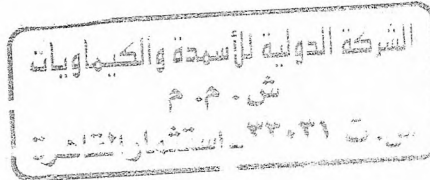 الشركة الدولية للأسمدة والكيماويات
ش . م . م
س . ت ٣٣٠٣١ _ استثمار القاهرة